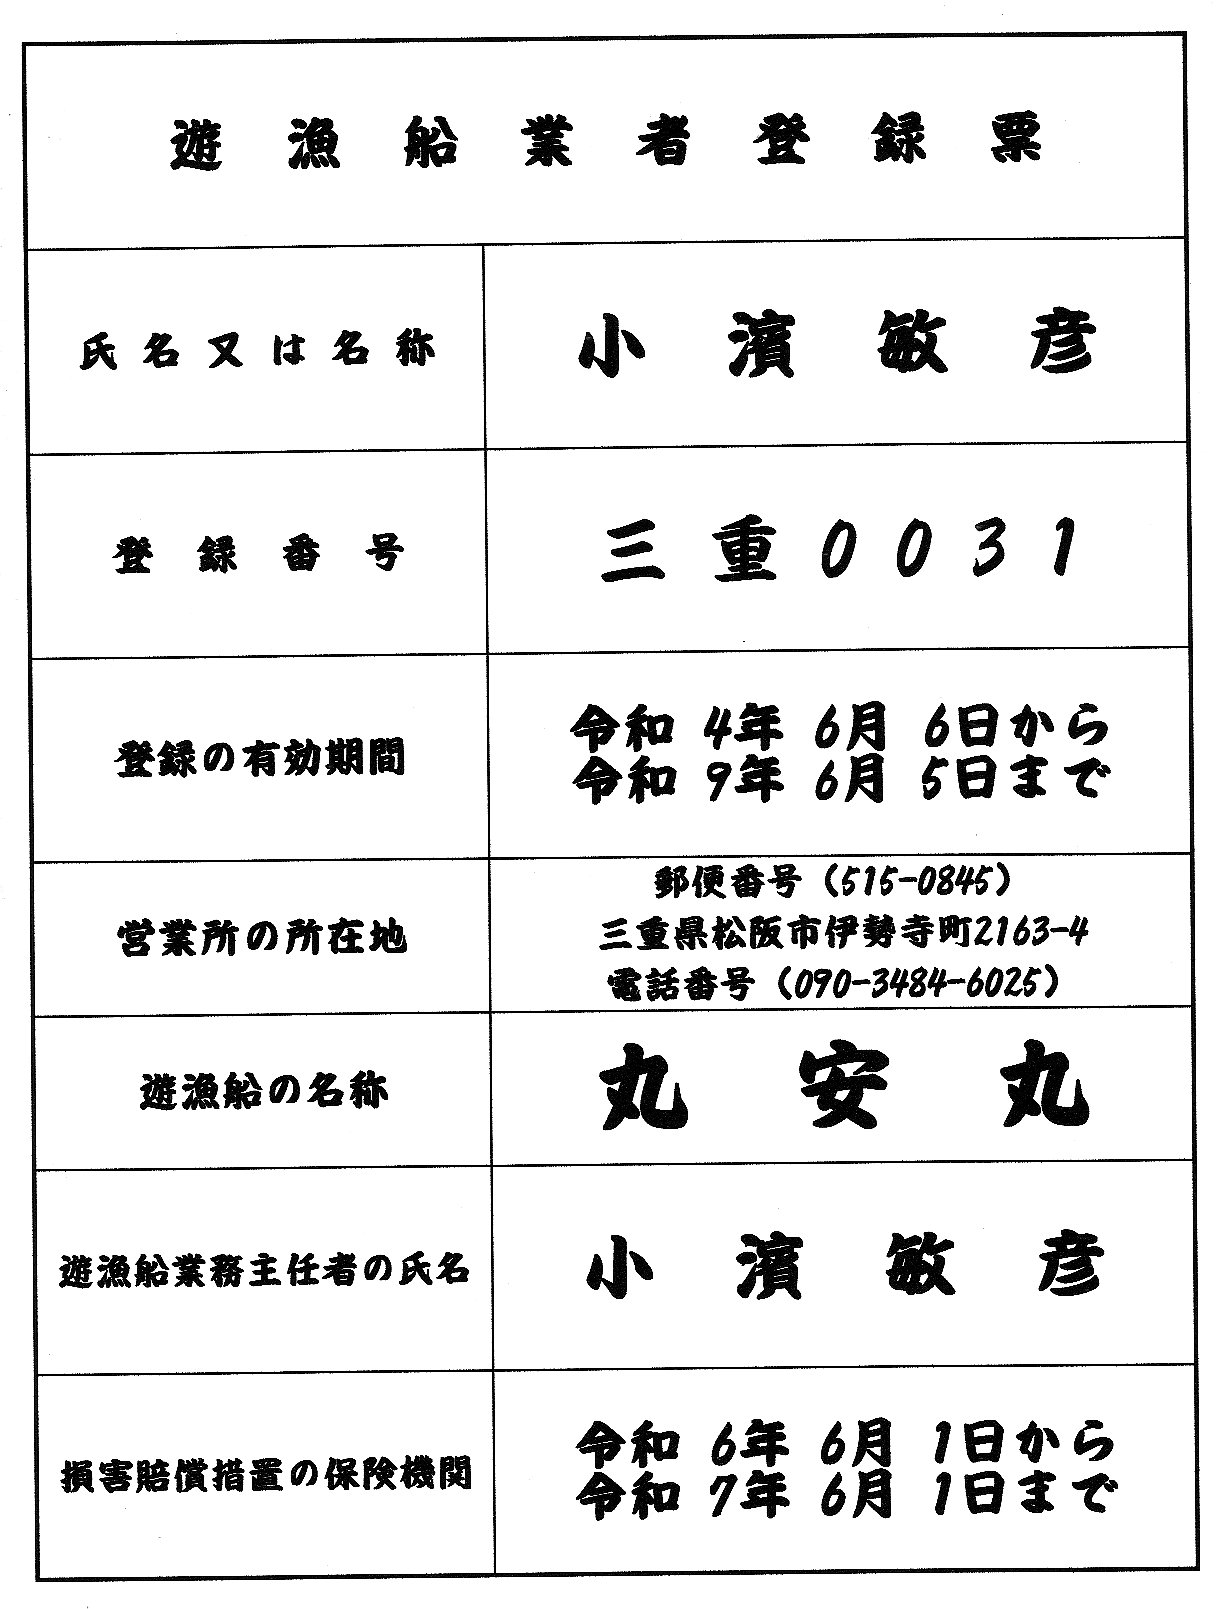 遊漁船業者登録票
氏名又は名称
小濱敏彦
登録番号
三重0031
登録の有効期間
令和 4年 6月 6日から
令和 9年 6月 5日まで
営業所の所在地
郵便番号（515-0845）
三重県松阪市伊勢寺町2163-4
電話番号（090-3484-6025）
遊漁船の名称
丸安丸
遊漁船業務主任者の氏名
小濱敏彦
損害賠償措置の保険機関
令和 6年 6月 1日から
令和 7年 6月 1日まで